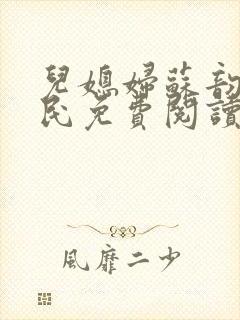 兒媳婦蘇韵
民免費閱讀
風靡二少